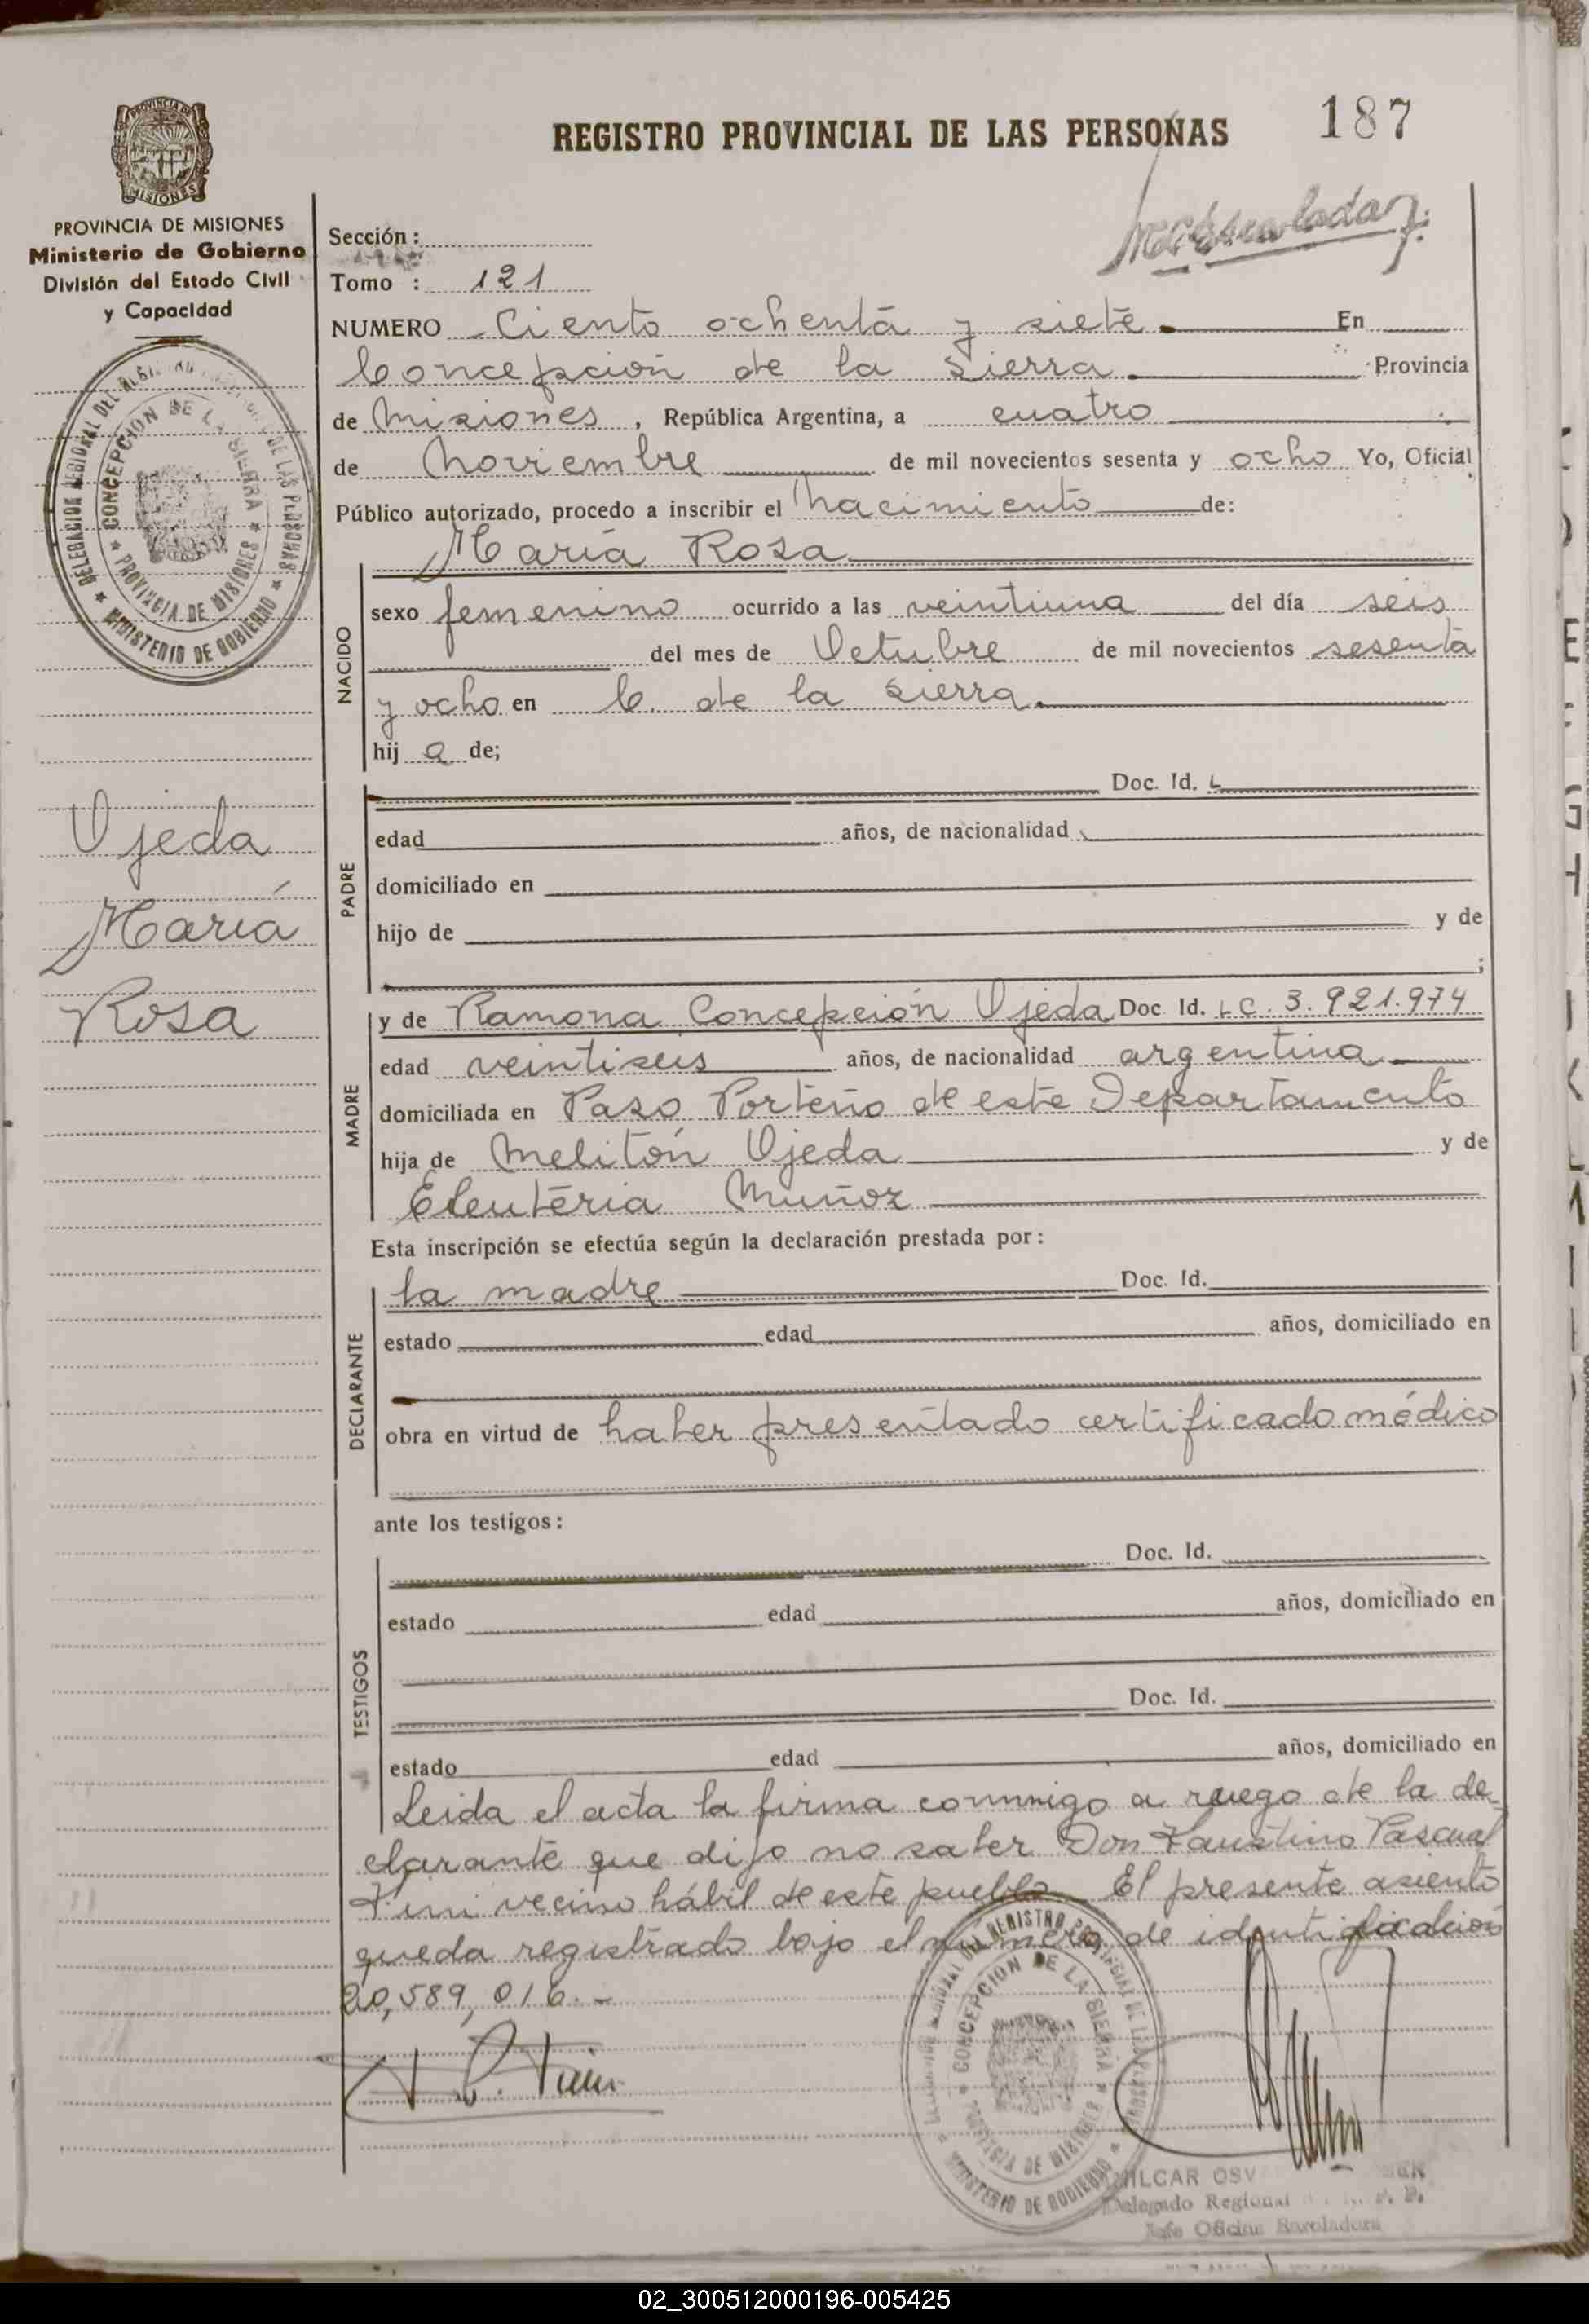 187
REGISTRO PROVINCIAL DE LAS PERSONAS
PROVINCIA DE MISIONES
Ministerio de Gobierno
División del Estado Civil
y Capacidad
Sección :
Tomo : 121
NUMERO Ciento ochenta y siete. En
Concepción de la Sierra. Provincia
de Misiones, República Argentina, a cuatro
de Noviembre de mil novecientos sesenta y ocho Yo, Oficial
Público autorizado, procedo a inscribir el Nacimiento de:
María Rosa
NACIDO
sexo femenino ocurrido a las veintiuna del día seis
del mes de Octubre de mil novecientos sesenta
y ocho en C. de la Sierra.
hij a de;
Ojeda
María
Rosa
PADRE
Doc. Id.
edad años, de nacionalidad
domiciliado en
hijo de y de
;
MADRE
y de Ramona Concepción Ojeda Doc. Id. LC. 3.921.974
edad veintiseis años, de nacionalidad argentina.
domiciliada en Paso Porteño de este Departamento
hija de Melitón Ojeda y de
Eleuteria Muñoz
Esta inscripción se efectúa según la declaración prestada por:
DECLARANTE
la madre Doc. Id.
estado edad años, domiciliado en
obra en virtud de haber presentado certificado médico
ante los testigos:
TESTIGOS
Doc. Id.
estado edad años, domiciliado en
Doc. Id.
estado edad años, domiciliado en
Leida el acta la firma conmigo a ruego de la de-
clarante que dijo no saber Don Faustino Pascual
vecino hábil de este pueblo El presente asiento
queda registrado bajo el número de identificación
20,589,016.-
DELEGACION REGIONAL DEL REGISTRO PROVINCIAL DE LAS PERSONAS
CONCEPCION DE LA SIERRA
PROVINCIA DE MISIONES
MINISTERIO DE GOBIERNO
Delegado Regional
Jefe Oficina Enroladora
02_300512000196-005425